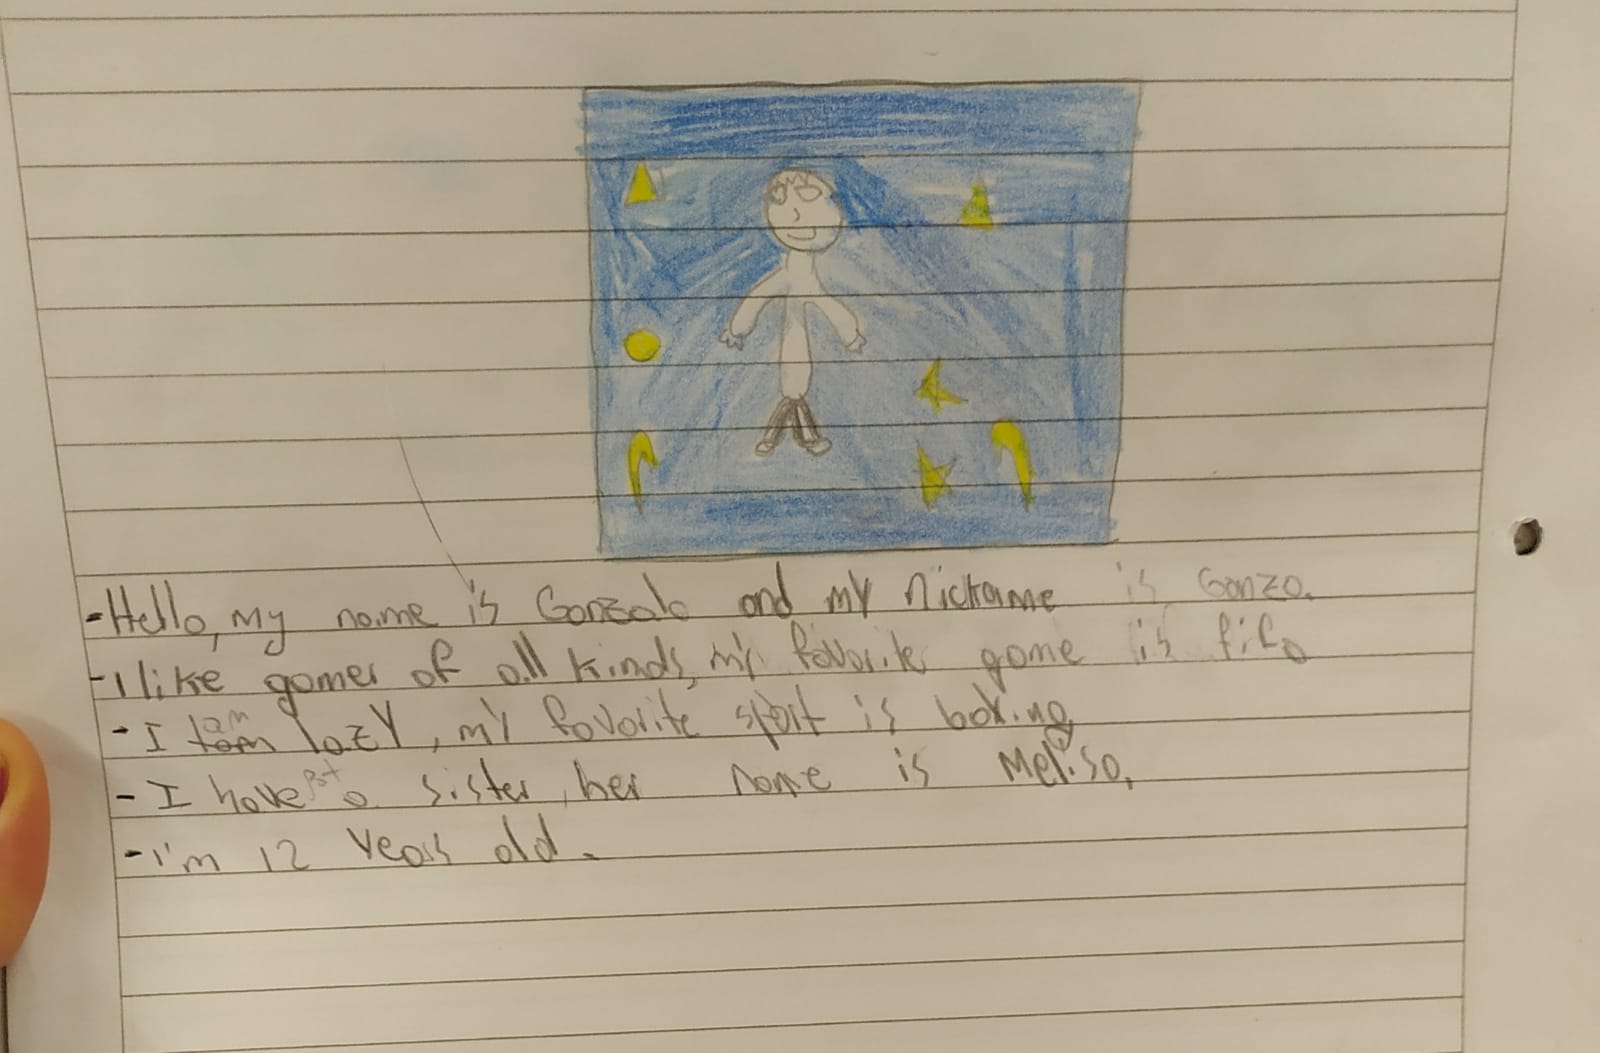 -Hello, my name is Gonzalo and my nickname is Gonzo.
-I like games of all kinds, my favorite game is fifa
-I am lazy, my favorite sport is boxing
-I have got a sister, her name is Melisa.
-I'm 12 years old.